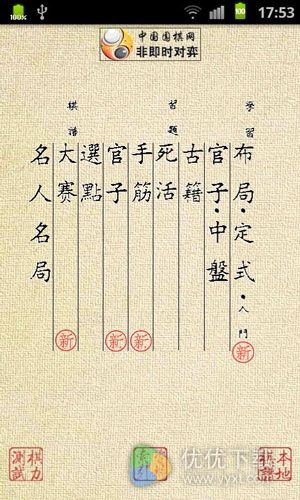 100%
17:53
中国围棋网
非即时对弈
学習
布局·定式·入門
新
官子·中盤
古籍
習題
死活
手筋
新
官子
新
選點
棋譜
大赛
新
名人名局
本地棋譜
棋力測試
优优下载